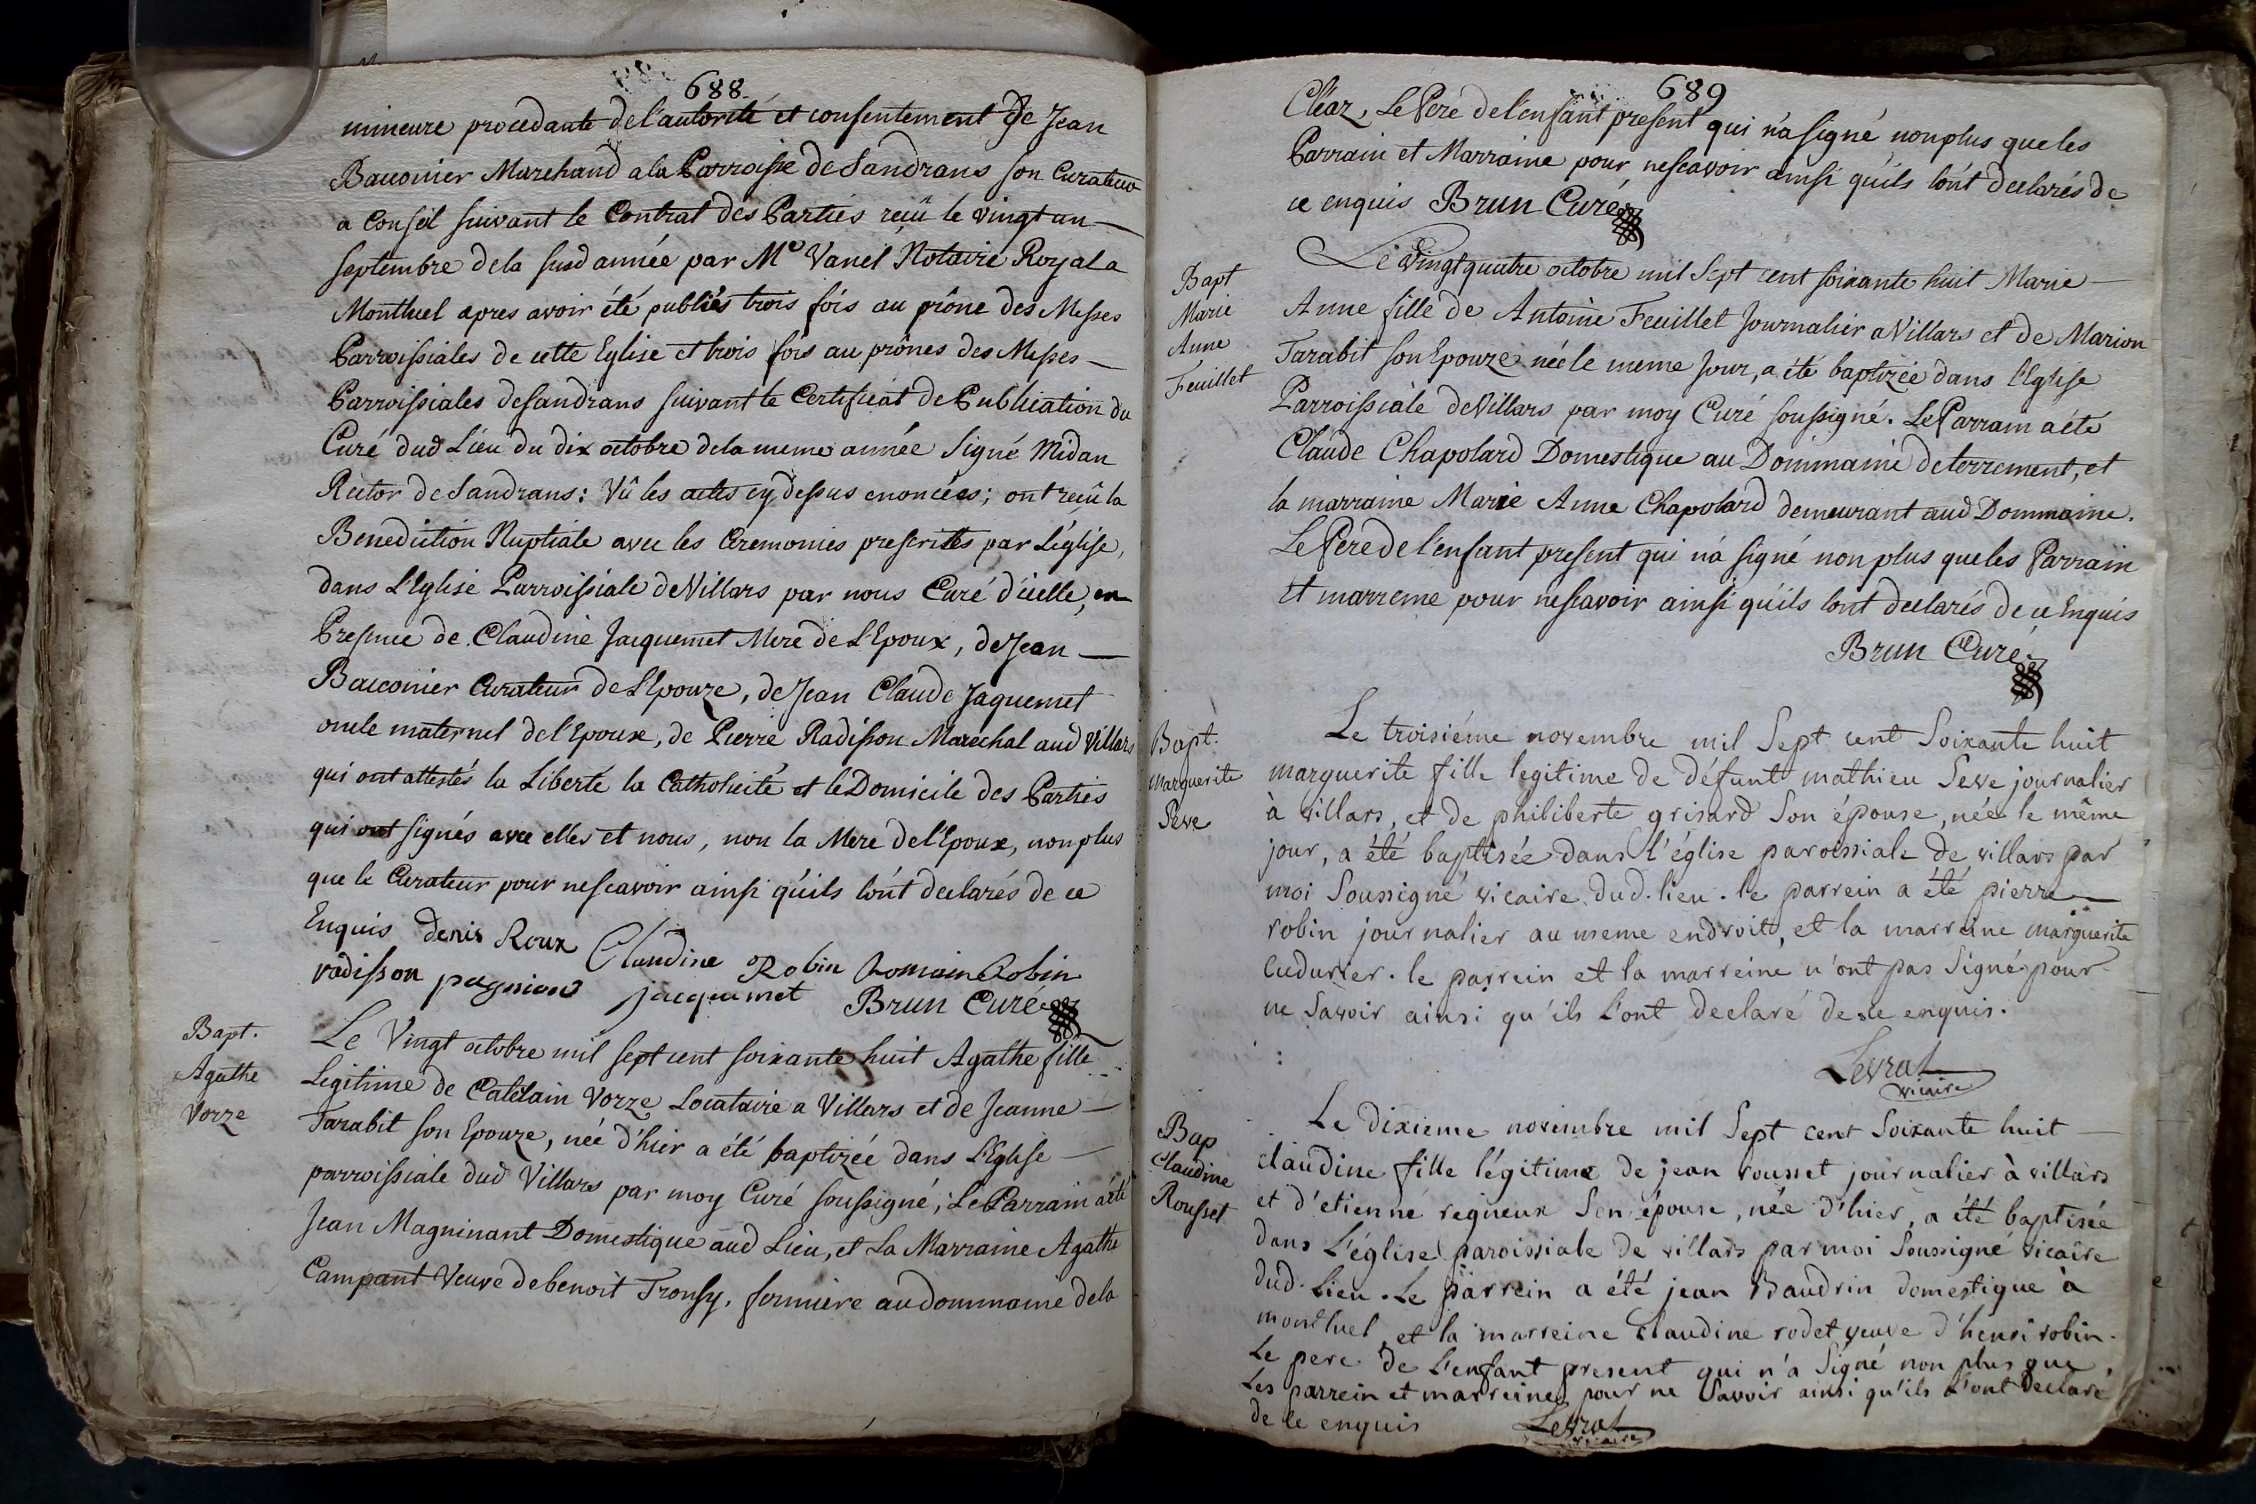 688
mineure procedante de l'autorité et consentement de Jean
Bauonier Marchand a la Parroisse de Sandrans son Curateur
a Conseil suivant le Contrat des Parties reçû le vingt un
septembre de la susd année par Me Vanel Notaire Royal a
Montluel apres avoir été publiés trois fois au prône des Messes
Parroissiales de cette Eglise et trois fois au prônes des Messes
Parroissiales de Sandrans suivant le Certificat de Publication du
Curé dud Lieu du dix octobre de la meme année Signé Midan
Rector de Sandrans: Vû les actes cy dessus enoncées; ont reçû la
Benediction Nuptiale avec les Ceremonies prescrittes par L'église,
dans L'Eglise Parroissiale de Villars par nous Curé d'icelle, en
Presence de Claudine Jacquemet Mere de L'Epoux, de Jean
Bauonier Curateur de L'Epouze, de Jean Claude Jaquemet
oncle maternel de l'Epoux, de Pierre Radisson Marechal aud Villars
qui ont attestés la Liberté la Catholicité et le Domicile des Parties
qui ont signés avec elles et nous, non la Mere de l'Epoux, non plus
que le Curateur pour ne scavoir ainsi qu'ils l'ont declarés de ce
Enquis denis Roux Claudine Robin Romain Robin
radisson pagnion jacquemet Brun Curé
Bapt.
Agathe
Vorze
Le Vingt octobre mil sept cent soixante huit Agathe fille
Legitime de Catelain Vorze Locataire a Villars et de Jeanne
Tarabit son Epouze, née d'hier a été baptizée dans L'Eglise
parroissiale dud Villars par moy Curé soussigné; Le Parrain a été
Jean Magninant Domestique aud Lieu, et La Marraine Agathe
Campant Veuve de benoit Tronsy, fermiere au dommaine de la
689
Cléaz, Le Pere de l'enfant present qui n'a signé non plus que les
Parrain et Marraine pour ne scavoir ainsi qu'ils l'ont declarés de
ce enquis Brun Curé
Bapt
Marie
Anne
Feuillet
Le Vingt quatre octobre mil Sept cent soixante huit Marie
Anne fille de Antoine Feuillet Journalier a Villars et de Marion
Tarabit son Epouze née le meme Jour, a été baptizée dans l'Eglise
Parroissiale de Villars par moy Curé soussigné. Le Parrain a été
Claude Chapolard Domestique au Dommaine de terrement, et
la marraine Marie Anne Chapolard demeurant aud Dommaine.
Le Pere de l'enfant present qui n'a signé non plus que les Parrain
et marreine pour ne scavoir ainsi qu'ils l'ont declarés de ce Enquis
Brun Curé
Bapt.
Marguerite
Seve
Le troisiéme novembre mil Sept cent Soixante huit
marguerite fille legitime de défunt mathieu Seve journalier
à villars, et de philiberte grisard Son épouse, née le même
jour, a été baptisée dans l'église paroissiale de villars par
moi Soussigné vicaire dud. lieu. le parrein a été pierre
robin journalier au meme endroit, et la marreine marguerite
cudurier. le parrein et la marreine n'ont pas Signé pour
ne Savoir ainsi qu'ils l'ont declaré de ce enquis.
Levrat
vicaire
Bap
Claudine
Rousset
Le dixieme novembre mil Sept cent Soixante huit
claudine fille légitime de jean rousset journalier à villars
et d'étienne regneux Son épouse, née d'hier, a été baptisée
dans L'église paroissiale de villars par moi Soussigné vicaire
dud. lieu. Le parrein a été jean Baudrin domestique à
montluel, et la marreine claudine rodet veuve d'henri robin.
Le pere de L'enfant present qui n'a Signé non plus que
Les parrein et marreine, pour ne Savoir ainsi qu'ils l'ont declaré
de ce enquis Levrat
vicaire